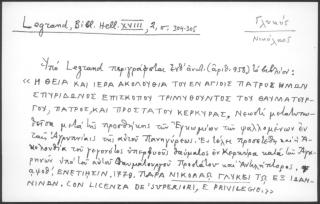 Legrand, Bibl. Hell. XVIII, 2, σ. 304-305
Γλυκύς
Νικόλαος
Ὑπὸ Legrand περιγράφεται ἐνθ' ἀνωτ. (ἀριθ. 958) τὸ βιβλίον:
« Η ΘΕΙΑ ΚΑΙ ΙΕΡΑ ΑΚΟΛΟΥΘΙΑ ΤΟΥ ΕΝ ΑΓΙΟΙΣ ΠΑΤΡΟΣ ΗΜΩΝ
ΣΠΥΡΙΔΩΝΟΣ ΕΠΙΣΚΟΠΟΥ ΤΡΙΜΥΘΟΥΝΤΟΣ ΤΟΥ ΘΑΥΜΑΤΟΥΡ-
ΓΟΥ, ΠΑΤΡΟΣ, ΚΑΙ ΠΡΟΣΤΑΤΟΥ ΚΕΡΚΥΡΑΣ. Νεωστὶ μετατυπω-
θεῖσα μετὰ τῆς προσθήκης τῶν Ἐγκωμίων τῶν ψαλλομένων ἐν
ταῖς Ἀγρυπνίαις τῆς αὐτοῦ Πανηγύρεως. Ἐν τέλει προσετέθη καὶ ἡ Ἀ-
κολουθία τοῦ γεγονότος ὑπερφυοῦς θαύματος ἐν Κερκύρᾳ κατὰ τῶν Ἀγα-
ρηνῶν ὑπὸ τοῦ αὐτοῦ Θαυματουργοῦ Προστάτου καὶ Ἀντιλήπτορος.
͵αψοθ', ΕΝΕΤΙΗΣΙΝ, 1779. ΠΑΡΑ ΝΙΚΟΛΑῼ ΓΛΥΚΕΙ Τῼ ΕΞ ΙΩΑΝ-
ΝΙΝΩΝ. CON LICENZA DE' SUPERIORI, E PRIVILEGIO.»